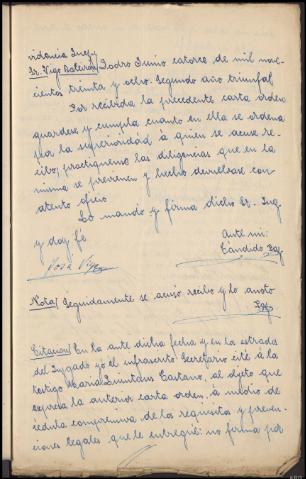 videncia Juez
Sr. Vigo Baleirón Padrón Junio catorce de mil nove-
cientos treinta y ocho. Segundo año triunfal
Por recibida la precedente carta orden
guardese y cumpla cuanto en ella se ordena
por la superioridad á quien se acuse reci-
cibo, practiquense las diligencias que en la
misma se previenen y hecho devuelvase con
atento oficio
Lo mandó y firma dicho Sr. Juez
y doy fé
Ante mi:
José Vigo
Cándido
Nota/ Seguidamente se acusó recibo y lo anoto
Citación/ En la ante dicha fecha y en los estrados
del Juzgado yó el infrascrito Secretario cité á la
testigo Maria Quintans Castaño, al objeto que
expresa la anterior carta orden, á medio de
cédula comprensiva de los requisitos y preven-
ciones legales que le entregué: no firma por